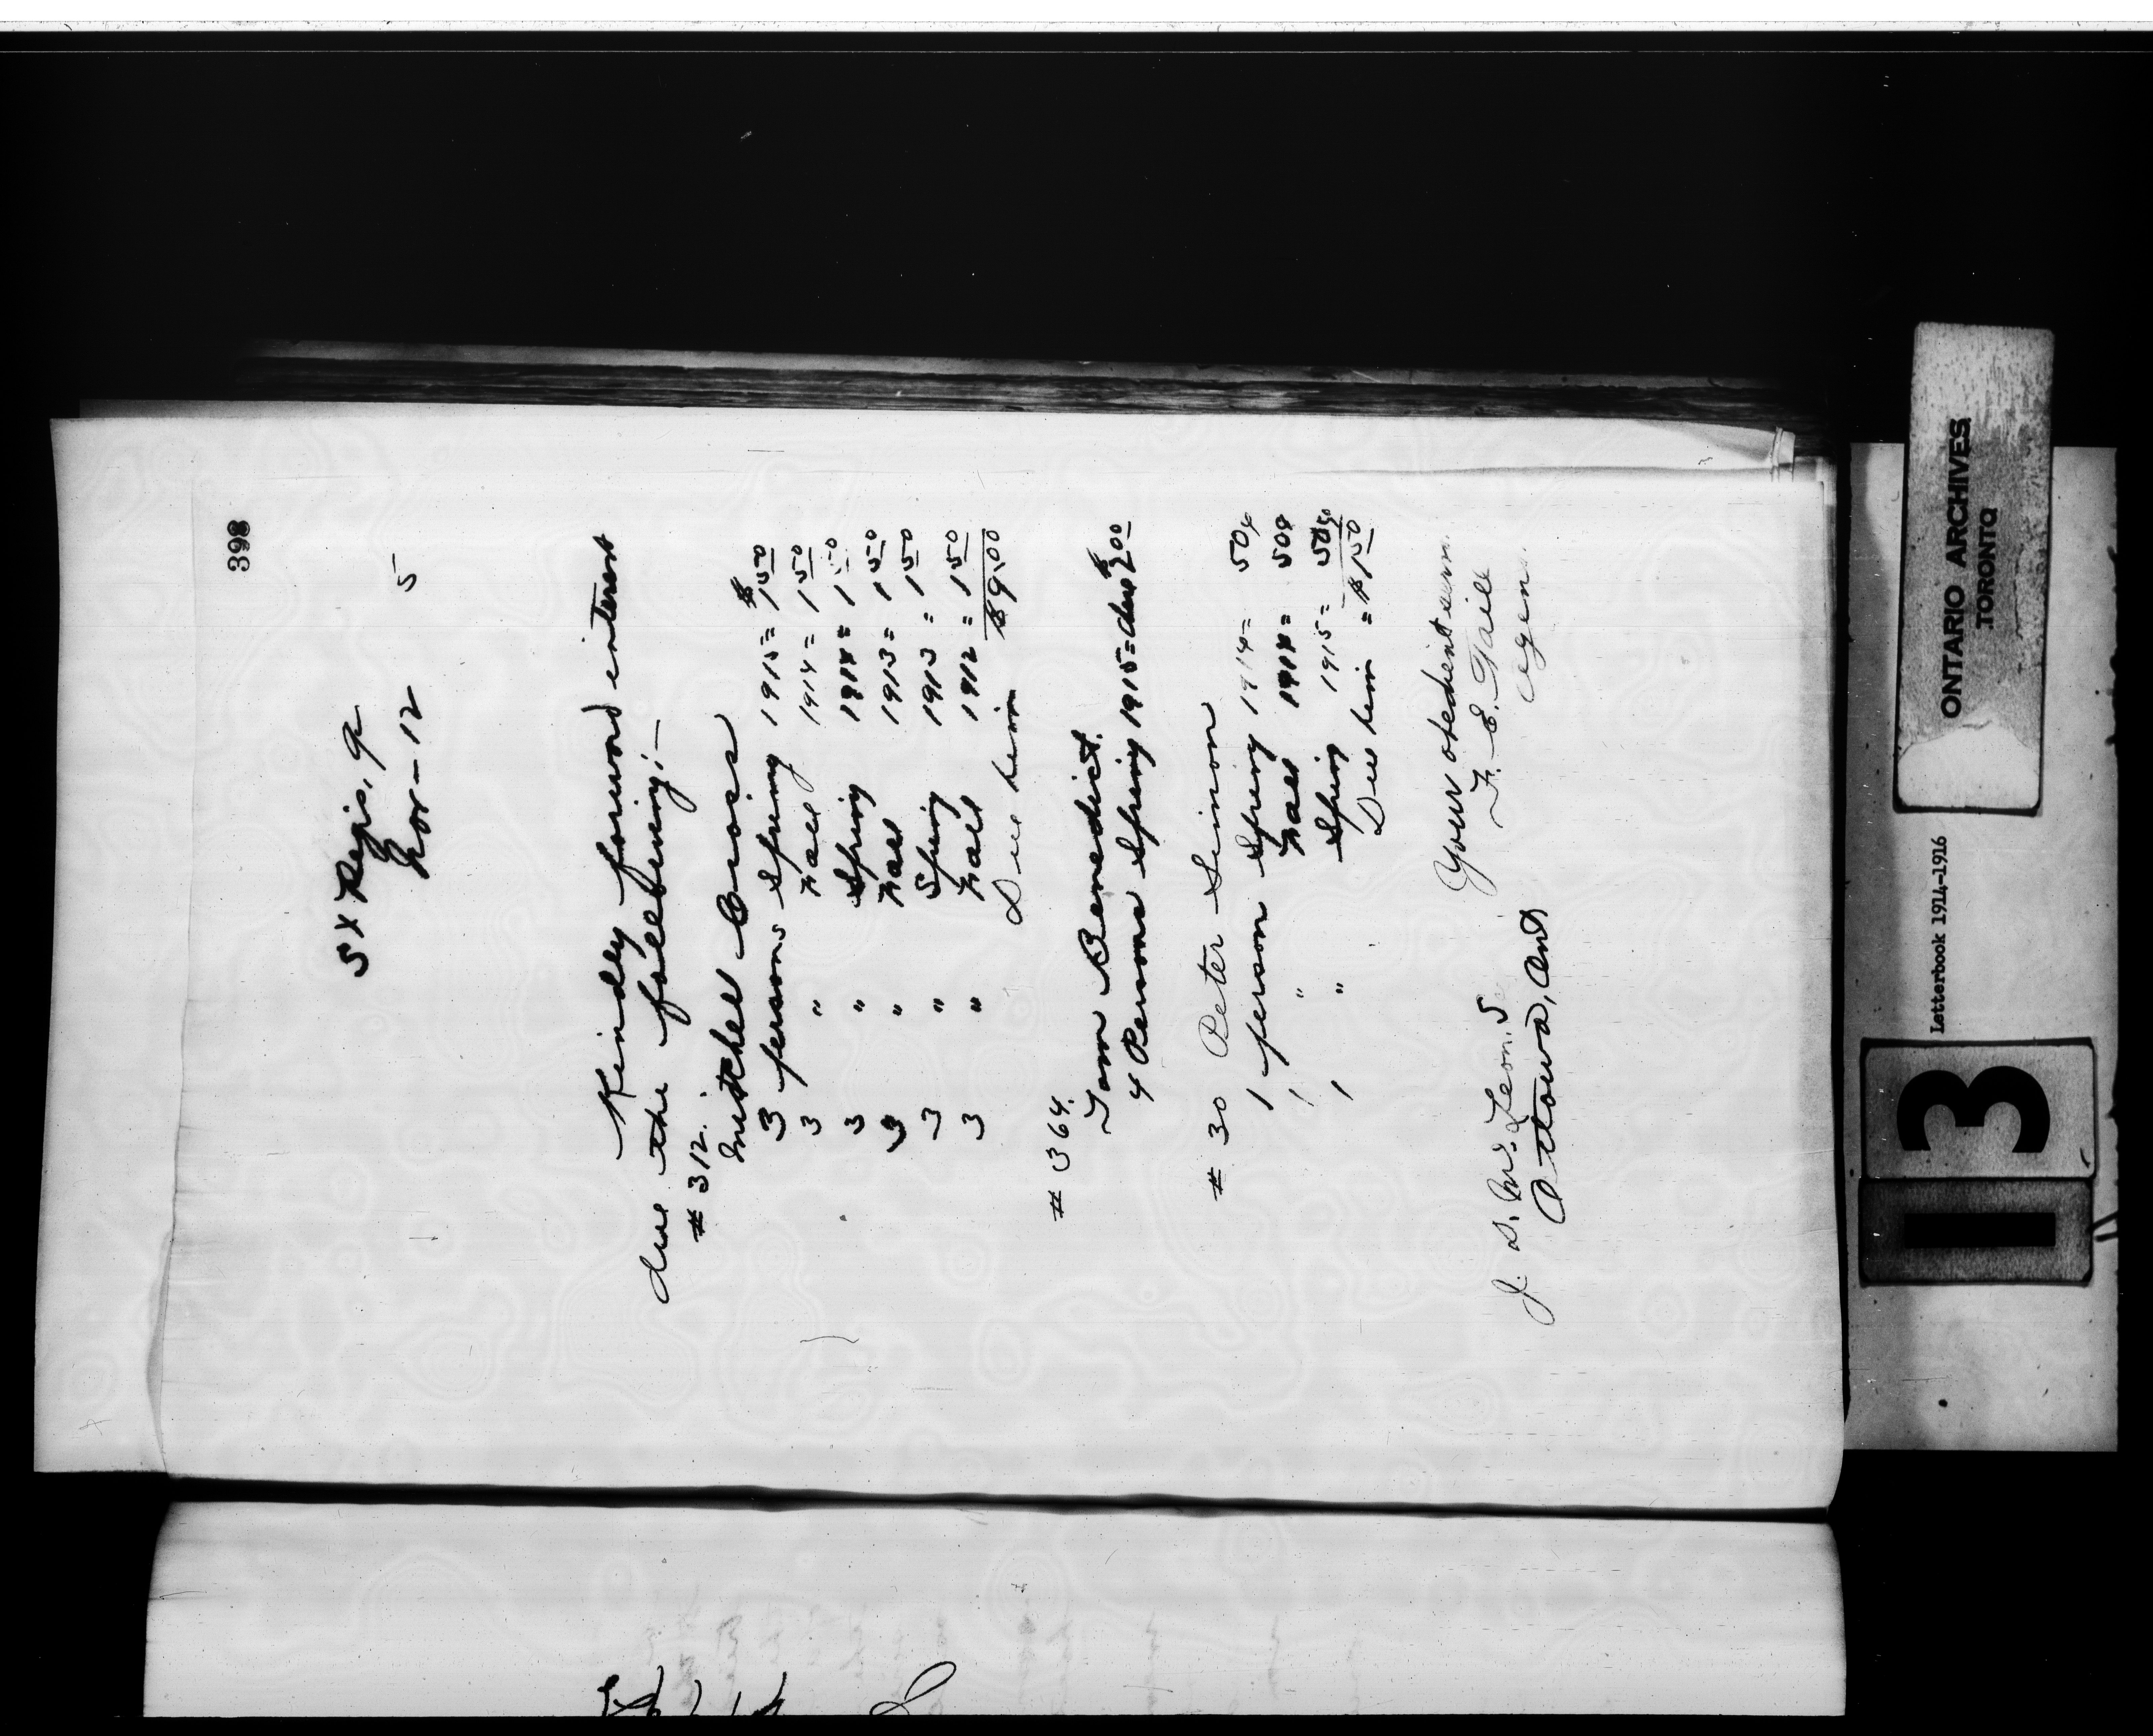 398
St Regis, Q
Nov - 12 5
Kindly forward interest
due the following:-
# 312.
Mitchel Cross
3 persons Spring 1915 = $1.50
3 " Fall 1914 = 1.50
3 " Spring 1914 = 1.50
3 " Fall 1913 = 1.50
3 " Spring 1913 = 1.50
3 " Fall 1912 = 1.50
Due him $9.00
# 364.
Tom Benedict.
4 Persons Spring 1915 = due $2.00
# 30 Peter Simon
1 person Spring 1914 = 50¢
1 " Fall 1914 = 50¢
1 " Spring 1915 = 50¢
Due him = $1.50
Your obedient serv.
F. E. Taill
Agen
J. D. McLean, S
Ottawa, Ont
ONTARIO ARCHIVES
TORONTO
Letterbook 1914-1916
13